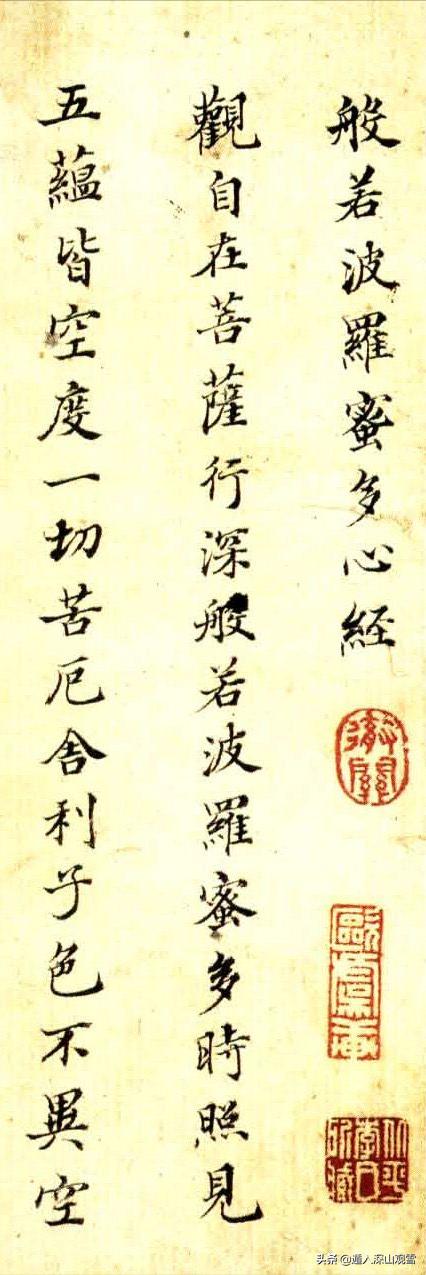 般若波羅蜜多心経
觀自在菩薩行深般若波羅蜜多時照見
五蘊皆空度一切苦厄舍利子色不異空
头条 @遁入深山观雪